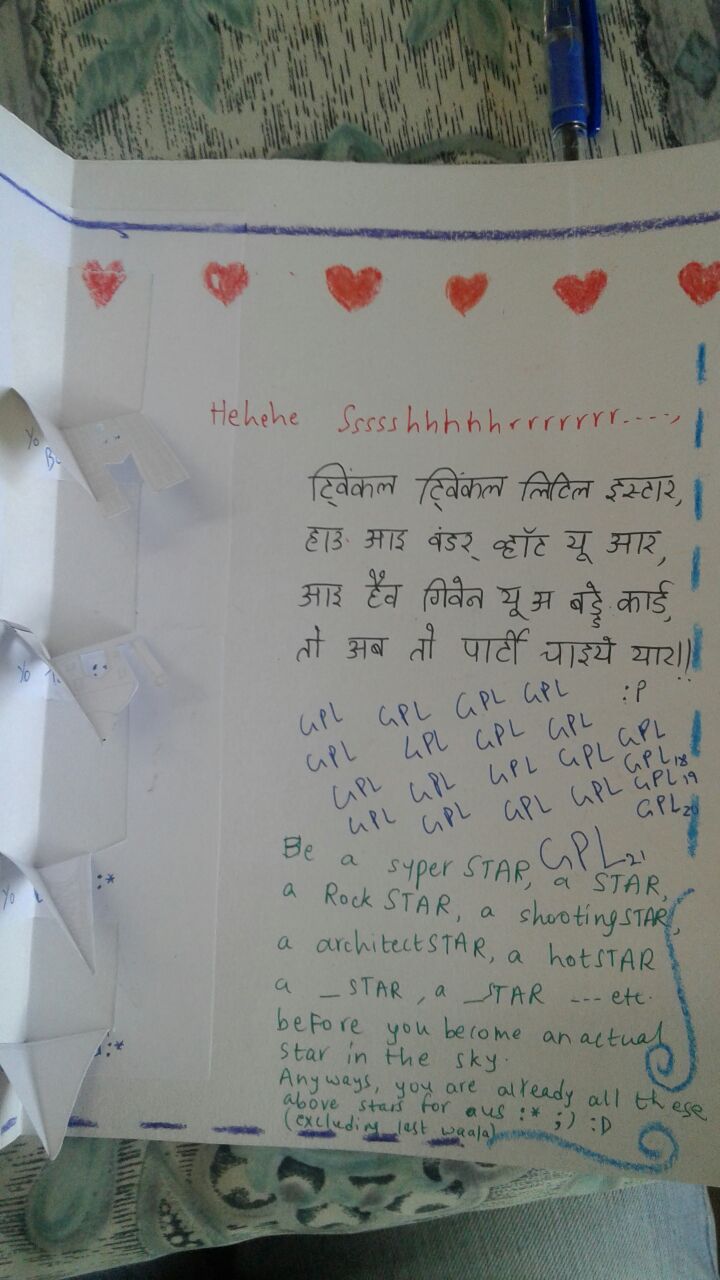 Hehehe Sssss hhhhhrrrrrrr----,
ट्विंकल ट्विंकल लिटिल इस्टार,
हाउ आइ वंडर् व्हॉट यू आर,
आइ हैव गिवेन यू अ बर्ड्डे कार्ड,
तो अब तो पार्टी चाइये यार!!
:P
GPL GPL GPL GPL
GPL GPL GPL GPL GPL
GPL GPL GPL GPL GPL18
GPL GPL GPL GPL GPL19
GPL20
GPL21
Be a syper STAR, a STAR,
a Rock STAR, a shootingSTAR,
a architectSTAR, a hotSTAR
a _STAR, a _STAR --- etc.
before you become an actual
star in the sky.
Anyways, you are already all these
above stars for aus :* ;) :D
(excluding last waala)
Yo
Yo
Yo
:*
:*